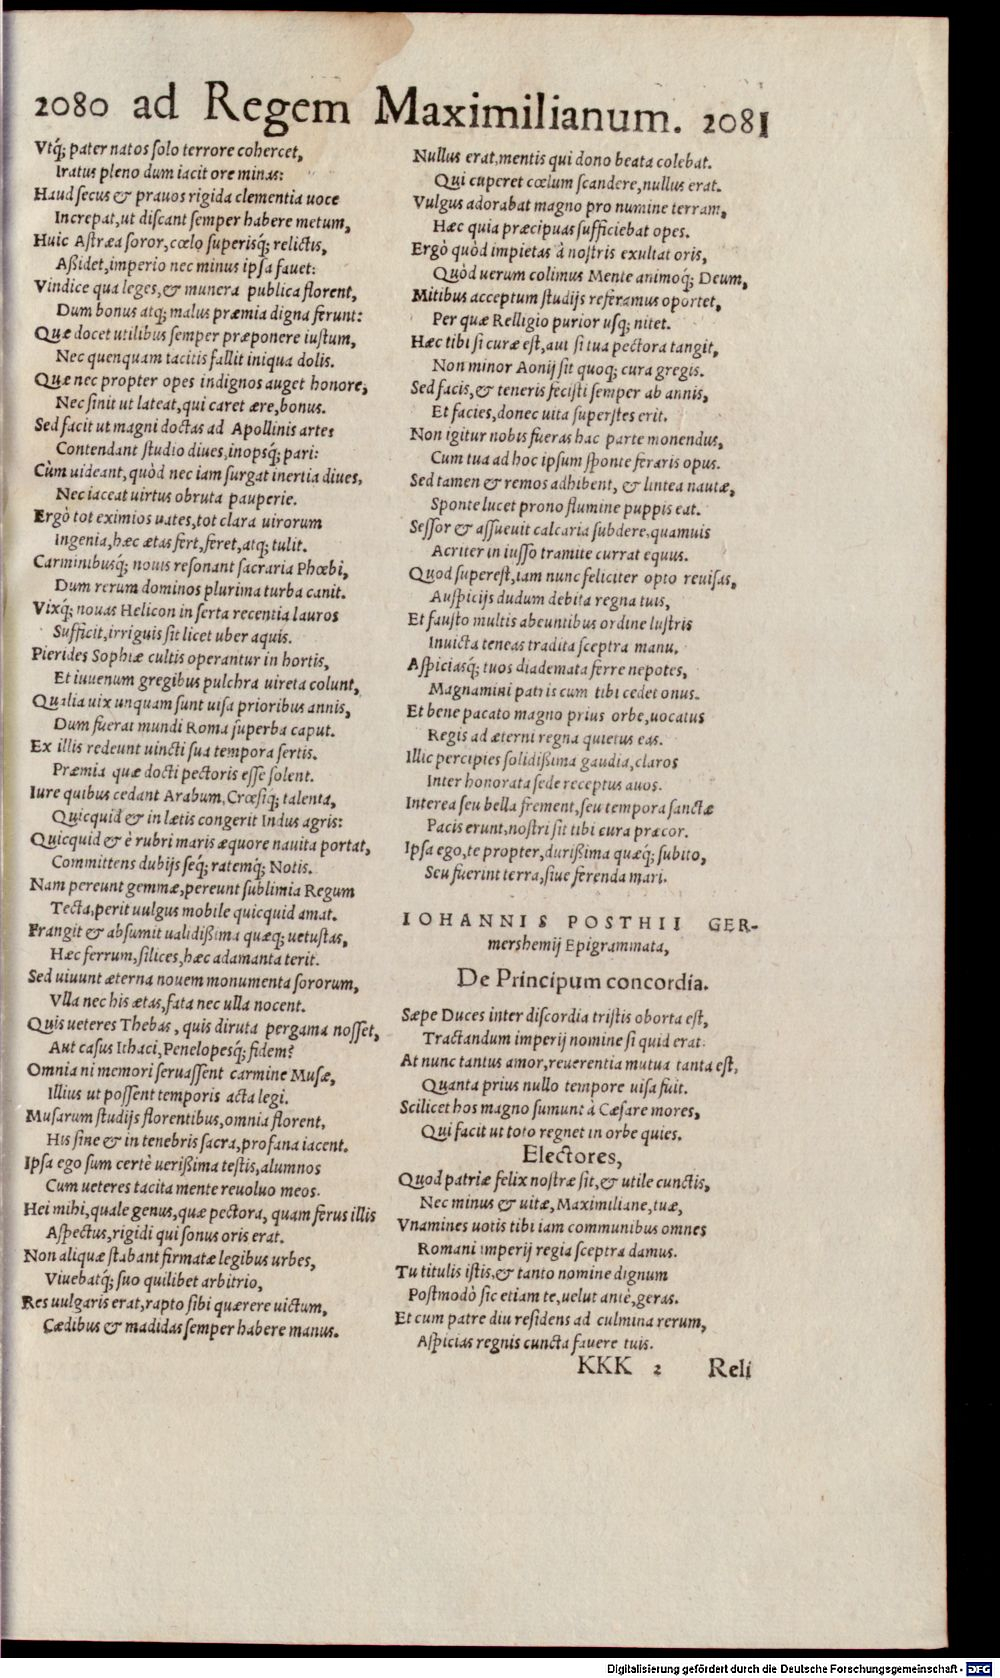 2080 ad Regem Maximilianum. 2081
Vtq́; pater natos ſolo terrore cohercet,
Iratus pleno dum iacit ore minas:
Haud ſecus & prauos rigida clementia uoce
Increpat, ut diſcant ſemper habere metum,
Huic Aſtræa ſoror, cœlo ſuperisq́; relictis,
Aßidet, imperio nec minus ipſa fauet:
Vindice qua leges, & munera publica florent,
Dum bonus atq; malus præmia digna ferunt:
Quæ docet utilibus ſemper præponere iuſtum,
Nec quenquam tacitis fallit iniqua dolis.
Quæ nec propter opes indignos auget honore,
Nec ſinit ut lateat, qui caret ære, bonus.
Sed facit ut magni doctas ad Apollinis artes
Contendant ſtudio diues, inopsq́; pari:
Cùm uideant, quòd nec iam ſurgat inertia diues,
Nec iaceat uirtus obruta pauperie.
Ergò tot eximios uates, tot clara uirorum
Ingenia, hæc ætas fert, feret, atq; tulit.
Carminibusq́; nouis reſonant ſacraria Phœbi,
Dum rerum dominos plurima turba canit.
Vixq́; nouas Helicon in ſerta recentia lauros
Sufficit, irriguis ſit licet uber aquis.
Pierides Sophiæ cultis operantur in hortis,
Et iuuenum gregibus pulchra uireta colunt,
Qualia uix unquam ſunt uiſa prioribus annis,
Dum fuerat mundi Roma ſuperba caput.
Ex illis redeunt uincti ſua tempora ſertis.
Præmia quæ docti pectoris eſſe ſolent.
Iure quibus cedant Arabum, Crœſiq́; talenta,
Quicquid & in lætis congerit Indus agris:
Quicquid & è rubri maris æquore nauita portat,
Committens dubijs ſeq́; ratemq́; Notis.
Nam pereunt gemmæ, pereunt ſublimia Regum
Tecta, perit uulgus mobile quicquid amat.
Frangit & abſumit ualidißima quæq; uetuſtas,
Hæc ferrum, ſilices, hæc adamanta terit.
Sed uiuunt æterna nouem monumenta ſororum,
Vlla nec his ætas, fata nec ulla nocent.
Quis ueteres Thebas, quis diruta pergama noſſet,
Aut caſus Ithaci, Penelopesq́; fidem?
Omnia ni memori ſeruaſſent carmine Muſæ,
Illius ut poſſent temporis acta legi.
Muſarum ſtudijs florentibus, omnia florent,
His ſine & in tenebris ſacra, profana iacent.
Ipſa ego ſum certè uerißima teſtis, alumnos
Cum ueteres tacita mente reuoluo meos.
Hei mihi, quale genus, quæ pectora, quam ferus illis
Aſpectus, rigidi qui ſonus oris erat.
Non aliquæ ſtabant firmatæ legibus urbes,
Viuebatq́; ſuo quilibet arbitrio,
Res uulgaris erat, rapto ſibi quærere uictum,
Cædibus & madidas ſemper habere manus.
Nullus erat, mentis qui dono beata colebat.
Qui cuperet cœlum ſcandere, nullus erat.
Vulgus adorabat magno pro numine terram,
Hæc quia præcipuas ſufficiebat opes.
Ergò quòd impietas à noſtris exultat oris,
Quòd uerum colimus Mente animoq́; Deum,
Mitibus acceptum ſtudijs referamus oportet,
Per quæ Relligio purior uſq; nitet.
Hæc tibi ſi curæ eſt, aut ſi tua pectora tangit,
Non minor Aonij ſit quoq; cura gregis.
Sed facis, & teneris feciſti ſemper ab annis,
Et facies, donec uita ſuperſtes erit.
Non igitur nobis fueras hac parte monendus,
Cum tua ad hoc ipſum ſponte feraris opus.
Sed tamen & remos adhibent, & lintea nautæ,
Sponte lucet prono flumine puppis eat.
Seſſor & aſſueuit calcaria ſubdere, quamuis
Acriter in iuſſo tramite currat equus.
Quod ſupereſt, iam nunc feliciter opto reuiſas,
Auſpicijs dudum debita regna tuis,
Et fauſto multis abeuntibus ordine luſtris
Inuicta teneas tradita ſceptra manu.
Aſpiciasq́; tuos diademata ferre nepotes,
Magnamini patris cum tibi cedet onus.
Et bene pacato magno prius orbe, uocatus
Regis ad æterni regna quietus eas.
Illic percipies ſolidißima gaudia, claros
Inter honorata ſede receptus auos.
Interea ſeu bella frement, ſeu tempora ſanctæ
Pacis erunt, noſtri ſit tibi cura præcor.
Ipſa ego, te propter, durißima quæq́; ſubito,
Seu fuerint terra, ſiue ferenda mari.
IOHANNIS POSTHII GER-
mershemij Epigrammata,
De Principum concordia.
Sæpe Duces inter diſcordia triſtis oborta eſt,
Tractandum imperij nomine ſi quid erat.
At nunc tantus amor, reuerentia mutua tanta eſt,
Quanta prius nullo tempore uiſa fuit.
Scilicet hos magno ſumunt à Cæſare mores,
Qui facit ut toto regnet in orbe quies.
Electores,
Quod patriæ felix noſtræ ſit, & utile cunctis,
Nec minus & uitæ, Maximiliane, tuæ,
Vnamines uotis tibi iam communibus omnes
Romani imperij regia ſceptra damus.
Tu titulis iſtis, & tanto nomine dignum
Poſtmodò ſic etiam te, uelut antè, geras.
Et cum patre diu reſidens ad culmina rerum,
Aſpicias regnis cuncta fauere tuis.
KKK 2 Reli
Digitalisierung gefördert durch die Deutsche Forschungsgemeinschaft - DFG